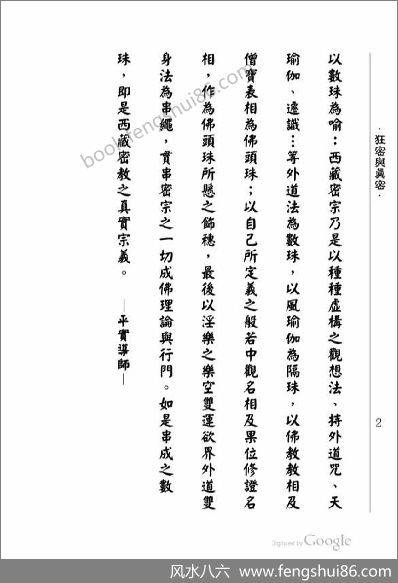 ·狂密與真密·
2
以數珠為喻：西藏密宗乃是以種種虛構之觀想法、持外道咒、天
瑜伽、遷識…等外道法為數珠，以風瑜伽為隔珠，以佛教教相及
僧寶表相為佛頭珠；以自己所定義之般若中觀名相及果位修證名
相，作為佛頭珠所懸之飾穗，最後以淫樂之樂空雙運欲界外道雙
身法為串繩，貫串密宗之一切成佛理論與行門。如是串成之數
珠，即是西藏密教之真實宗義。
——平實導師——
Digitized by Google
风水八六 - www.fengshui86.com